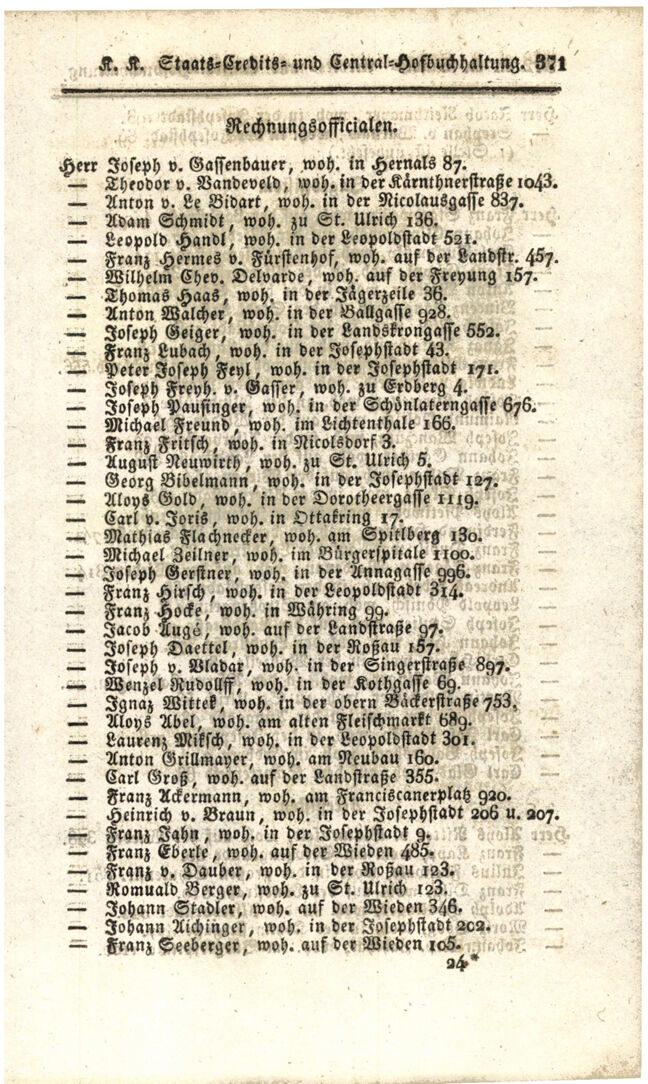 K. K. Staats-Credits- und Central-Hofbuchhaltung. 371
Rechnungsofficialen.
Herr Joseph v. Gassenbauer, woh. in Hernals 87.
— Theodor v. Vandeveld, woh. in der Kärnthnerstraße 1043.
— Anton v. Le Bidart, woh. in der Nicolausgasse 837.
— Adam Schmidt, woh. zu St. Ulrich 136.
— Leopold Handl, woh. in der Leopoldstadt 521.
— Franz Hermes v. Fürstenhof, woh. auf der Landstr. 457.
— Wilhelm Chev. Delvarde, woh. auf der Freyung 157.
— Thomas Haas, woh. in der Jägerzeile 36.
— Anton Walcher, woh. in der Ballgasse 928.
— Joseph Geiger, woh. in der Landskrongasse 552.
— Franz Lubach, woh. in der Josephstadt 43.
— Peter Joseph Feyl, woh. in der Josephstadt 171.
— Joseph Freyh. v. Gasser, woh. zu Erdberg 4.
— Joseph Pausinger, woh. in der Schönlaterngasse 676.
— Michael Freund, woh. im Lichtenthale 166.
— Franz Fritsch, woh. in Nicolsdorf 3.
— August Neuwirth, woh. zu St. Ulrich 5.
— Georg Bibelmann, woh. in der Josephstadt 127.
— Aloys Gold, woh. in der Dorotheergasse 1119.
— Carl v. Joris, woh. in Ottakring 17.
— Mathias Flachnecker, woh. am Spitlberg 130.
— Michael Zeilner, woh. im Bürgerspitale 1100.
— Joseph Gerstner, woh. in der Annagasse 996.
— Franz Hirsch, woh. in der Leopoldstadt 314.
— Franz Hocke, woh. in Währing 99.
— Jacob Augé, woh. auf der Landstraße 97.
— Joseph Daettel, woh. in der Roßau 157.
— Joseph v. Vladar, woh. in der Singerstraße 897.
— Wenzel Rudollff, woh. in der Kothgasse 69.
— Ignaz Wittek, woh. in der obern Bäckerstraße 753.
— Aloys Abel, woh. am alten Fleischmarkt 689.
— Laurenz Miksch, woh. in der Leopoldstadt 301.
— Anton Grillmayer, woh. am Neubau 160.
— Carl Groß, woh. auf der Landstraße 355.
— Franz Ackermann, woh. am Franciscanerplatz 920.
— Heinrich v. Braun, woh. in der Josephstadt 206 u. 207.
— Franz Jahn, woh. in der Josephstadt 9.
— Franz Eberle, woh. auf der Wieden 485.
— Franz v. Dauber, woh. in der Roßau 123.
— Romuald Berger, woh. zu St. Ulrich 123.
— Johann Stadler, woh. auf der Wieden 346.
— Johann Aichinger, woh. in der Josephstadt 202.
— Franz Seeberger, woh. auf der Wieden 105.
24*